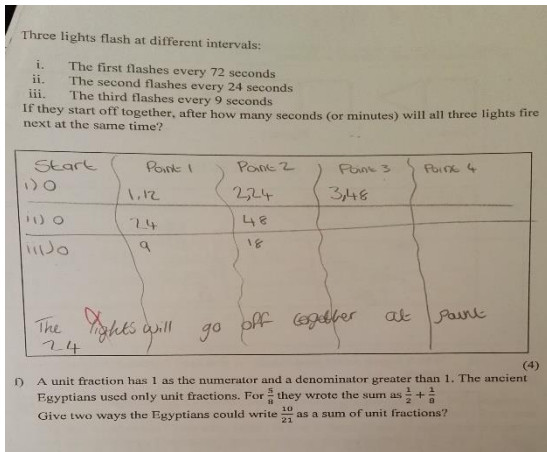 Three lights flash at different intervals:
i. The first flashes every 72 seconds
ii. The second flashes every 24 seconds
iii. The third flashes every 9 seconds
If they start off together, after how many seconds (or minutes) will all three lights fire
next at the same time?
Start Point 1 Point 2 Point 3 Point 4
i) 0 1.12 2,24 3,48
ii) 0 24 48
iii) 0 9 18
The lights will go off together at point
24
(4)
f) A unit fraction has 1 as the numerator and a denominator greater than 1. The ancient
Egyptians used only unit fractions. For 5/8 they wrote the sum as 1/2 + 1/8
Give two ways the Egyptians could write 10/21 as a sum of unit fractions?